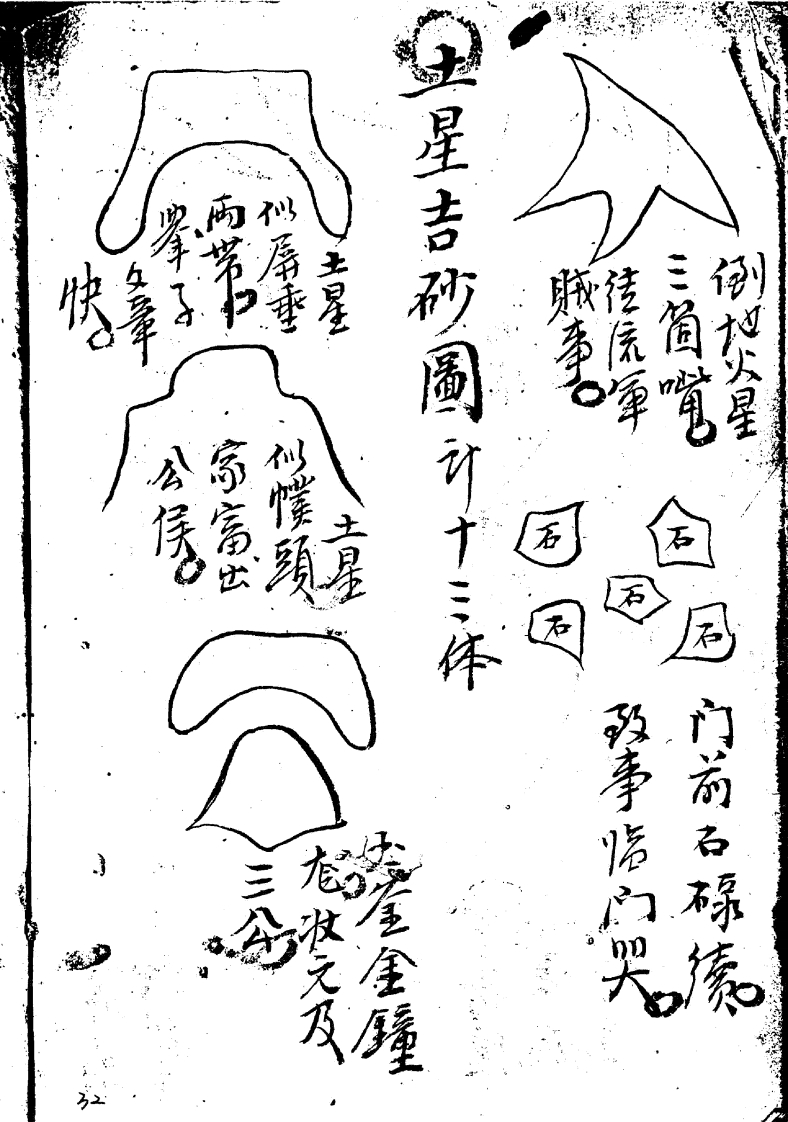 倒地火星
三箇嘴
徒流軍
賊事
石
石
石
石
石
门前石碌續
致事临门哭
土星吉砂圖计十三体
土星
似屏垂
兩帶
舉子
文章
快
土星
似幞頭
家富出
公侯
金金鐘
状元及
三公
32